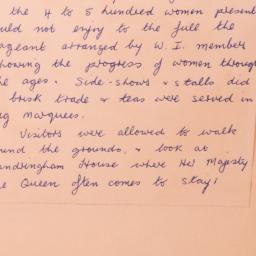 the 4 to 5 hundred women present
uld not enjoy to the full the
ageant arranged by W. I. member
howing the progress of women through
he ages. Side-shows & stalls did
brisk trade & teas were served in
ig marquees.
Visitors were allowed to walk
ound the grounds, & look at
andringham House where Her Majesty
he Queen often comes to stay!